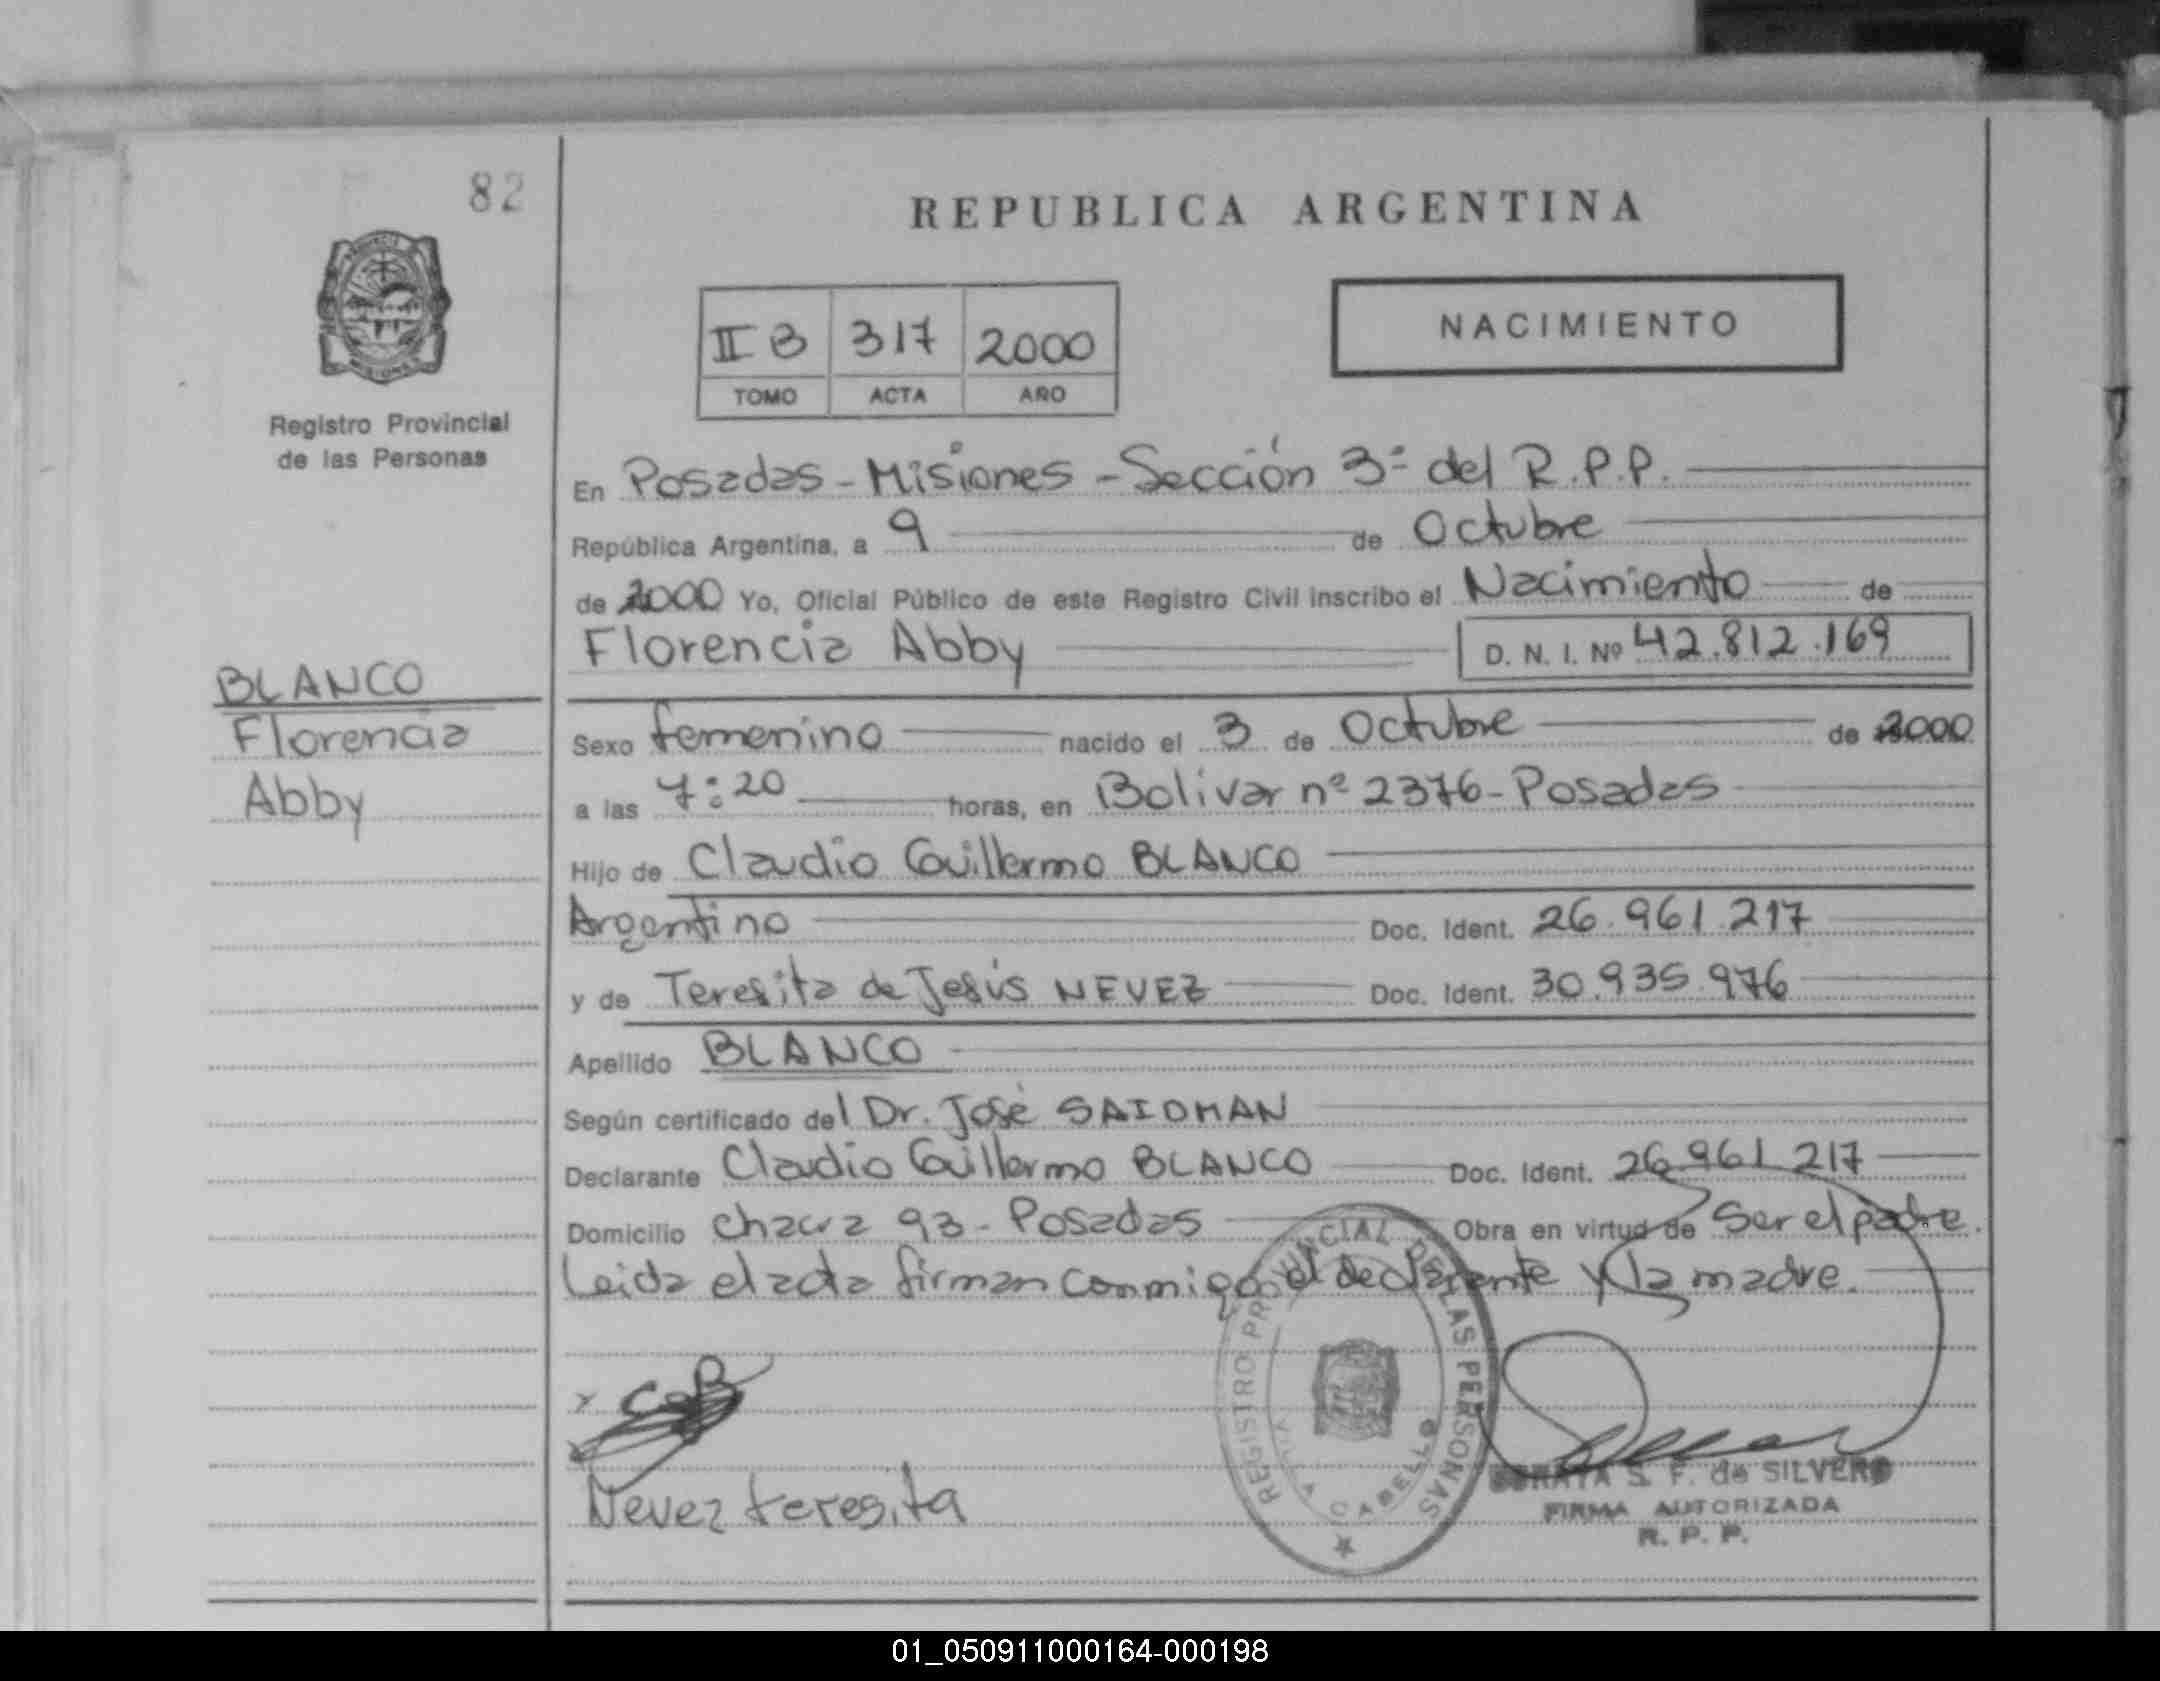 82
REPUBLICA ARGENTINA
II B 317 2000
TOMO ACTA AÑO
NACIMIENTO
Registro Provincial
de las Personas
En Posadas - Misiones - Sección 3ª del R.P.P.
República Argentina, a 9 de Octubre
de 2000 Yo, Oficial Público de este Registro Civil inscribo el Nacimiento de
Florencia Abby D. N. I. Nº 42.812.169
BLANCO
Florencia
Abby
Sexo femenino nacido el 3 de Octubre de 2000
a las 7:20 horas, en Bolivar nº 2376 - Posadas
Hijo de Claudio Guillermo BLANCO
Argentino Doc. Ident. 26.961.217
y de Teresita de Jesús NEVEZ Doc. Ident. 30.935.976
Apellido BLANCO
Según certificado del Dr. José SAIDMAN
Declarante Claudio Guillermo BLANCO Doc. Ident. 26.961.217
Domicilio chacra 93 - Posadas Obra en virtud de Ser el padre.
Leida el acta firman conmigo el declarante y la madre.
REGISTRO PROVINCIAL DE LAS PERSONAS
VILLA CABELLO
Nevez teresita
SORAYA S. F. de SILVERO
FIRMA AUTORIZADA
R. P. P.
01_050911000164-000198